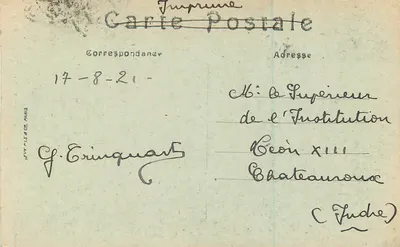 Imprimé
Carte Postale
Correspondance
Adresse
17-8-21-
G. Trinquart
Mr. le Supérieur
de l'Institution
Léon XIII
Chateauroux
(Indre)